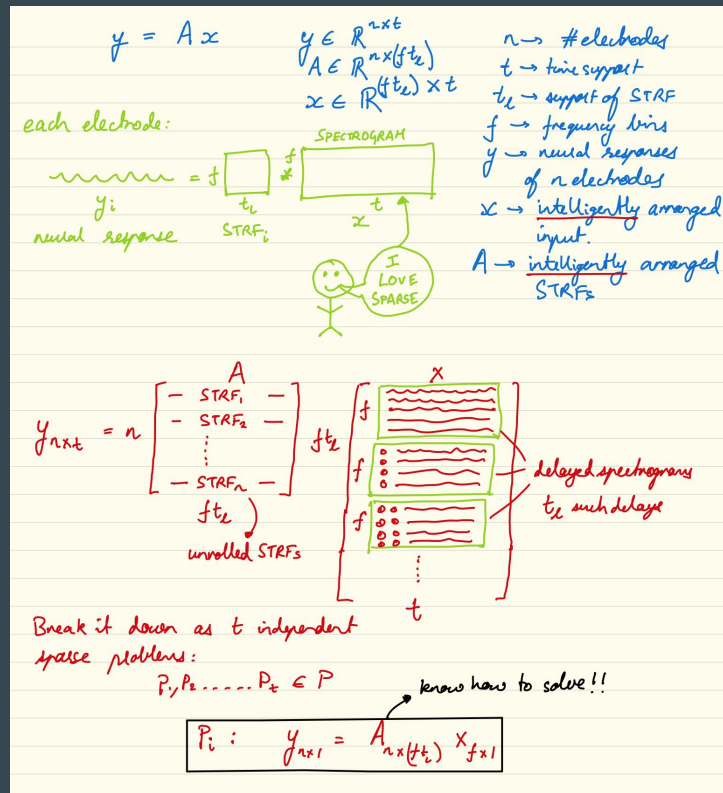 y = A x
y ∈ ℝ^{n×t}
A ∈ ℝ^{n×(f t_l)}
x ∈ ℝ^{(f t_l) × t}
n → #electrodes
t → time support
t_l → support of STRF
f → frequency bins
y → neural responses
of n electrodes
x → intelligently arranged
input.
A → intelligently arranged
STRFs
each electrode:
SPECTROGRAM
= f * f
y_i t_l t
neural response STRF_i x
I
LOVE
SPARSE
A x
y_{n×t} = n
— STRF_1 —
— STRF_2 —
— STRF_n —
f t_l
unrolled STRFs
f t_l
f
f
f
t
delayed spectrograms
t_l such delays
Break it down as t independent
sparse problems:
P_1, P_2 ...... P_t ∈ P
know how to solve!!
P_i : y_{n×1} = A_{n×(f t_l)} x_{f×1}